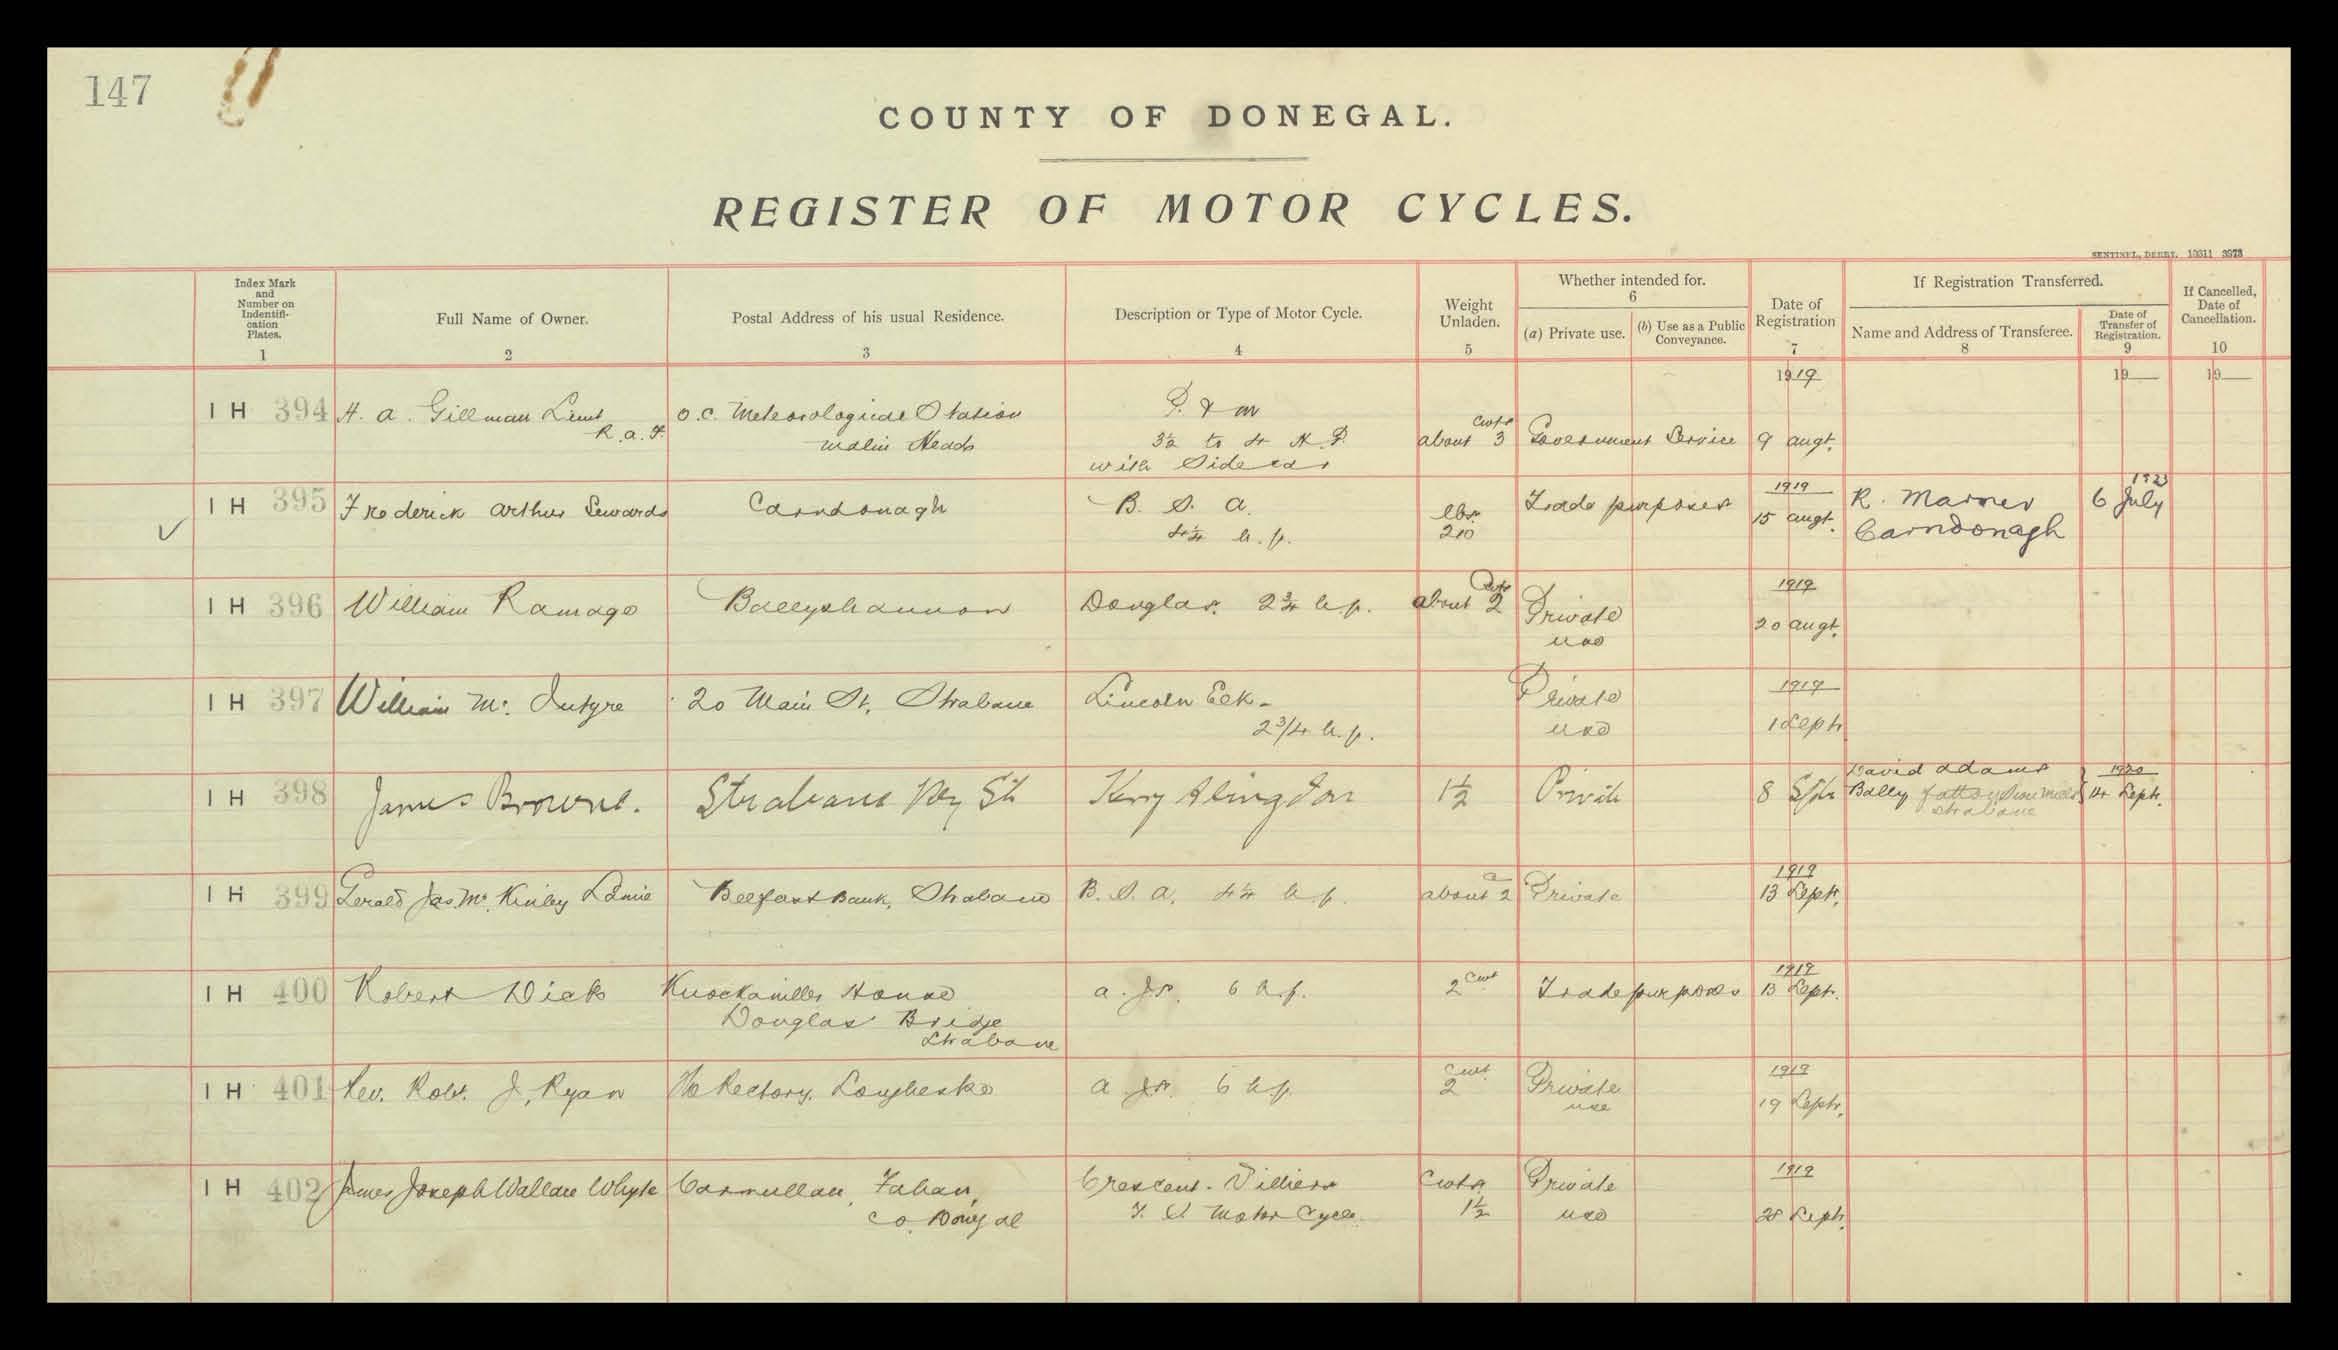 147
COUNTY OF DONEGAL.
REGISTER OF MOTOR CYCLES.
SENTINEL, DERRY. 10311 3973
Index Mark
and
Number on
Indentifi-
cation
Plates.
1
Full Name of Owner.
2
Postal Address of his usual Residence.
3
Description or Type of Motor Cycle.
4
Weight
Unladen.
5
Whether intended for.
6
(a) Private use.
(b) Use as a Public
Conveyance.
Date of
Registration
7
If Registration Transferred.
Name and Address of Transferee.
8
Date of
Transfer of
Registration.
9
If Cancelled,
Date of
Cancellation.
10
1919
19
19
I H 394 H. A. Gillman Lieut
R.A.F.
O.C. Meteorological Station
Malin Head
P. & M
3½ to 4 H.P.
with Sidecar
cwts
about 3
Government Service
9 Augt.
I H 395 Frederick Arthur Sewards
Carndonagh
B. S. A.
4¼ h.p.
lbs.
210
Trade purposes
1919
15 Augt.
R. Marner
Carndonagh
1923
6 July
I H 396 William Ramage
Ballyshannon
Douglas. 2¾ h.p.
Cwts
about 2
Private
use
1919
20 Augt.
I H 397 William Mc. Intyre
20 Main St, Strabane
Lincoln Elk-
2 3/4 h.p.
Private
use
1919
1 Sept
I H 398 James Browne.
Strabane Rly St
1½
Private
8 Sptr
David Adams
Bally
Strabane
1920
14 Sept.
I H 399 Gerald Jas. Mc. Kinley
Belfast Bank, Strabane
B. S. A. 4¼ h.p.
about 2
Private
1919
13 Sept.
I H 400 Robert Dick
House
Douglas Bridge
Strabane
A. J. S. 6 h.p.
2 cwt
Trade purposes
1919
13 Sept.
I H 401 Rev. Robt. J. Ryan
The Rectory. Lougheske
A. J. S. 6 h.p.
cwt.
2
Private
use
1919
19 Septr.
I H 402 James Joseph Wallace Whyte
Carmullan, Fahan,
Co. Donegal
Crescent - Villiers
T. S. Motor Cycle.
Cwts
1½
Private
use
1919
28 Sept.